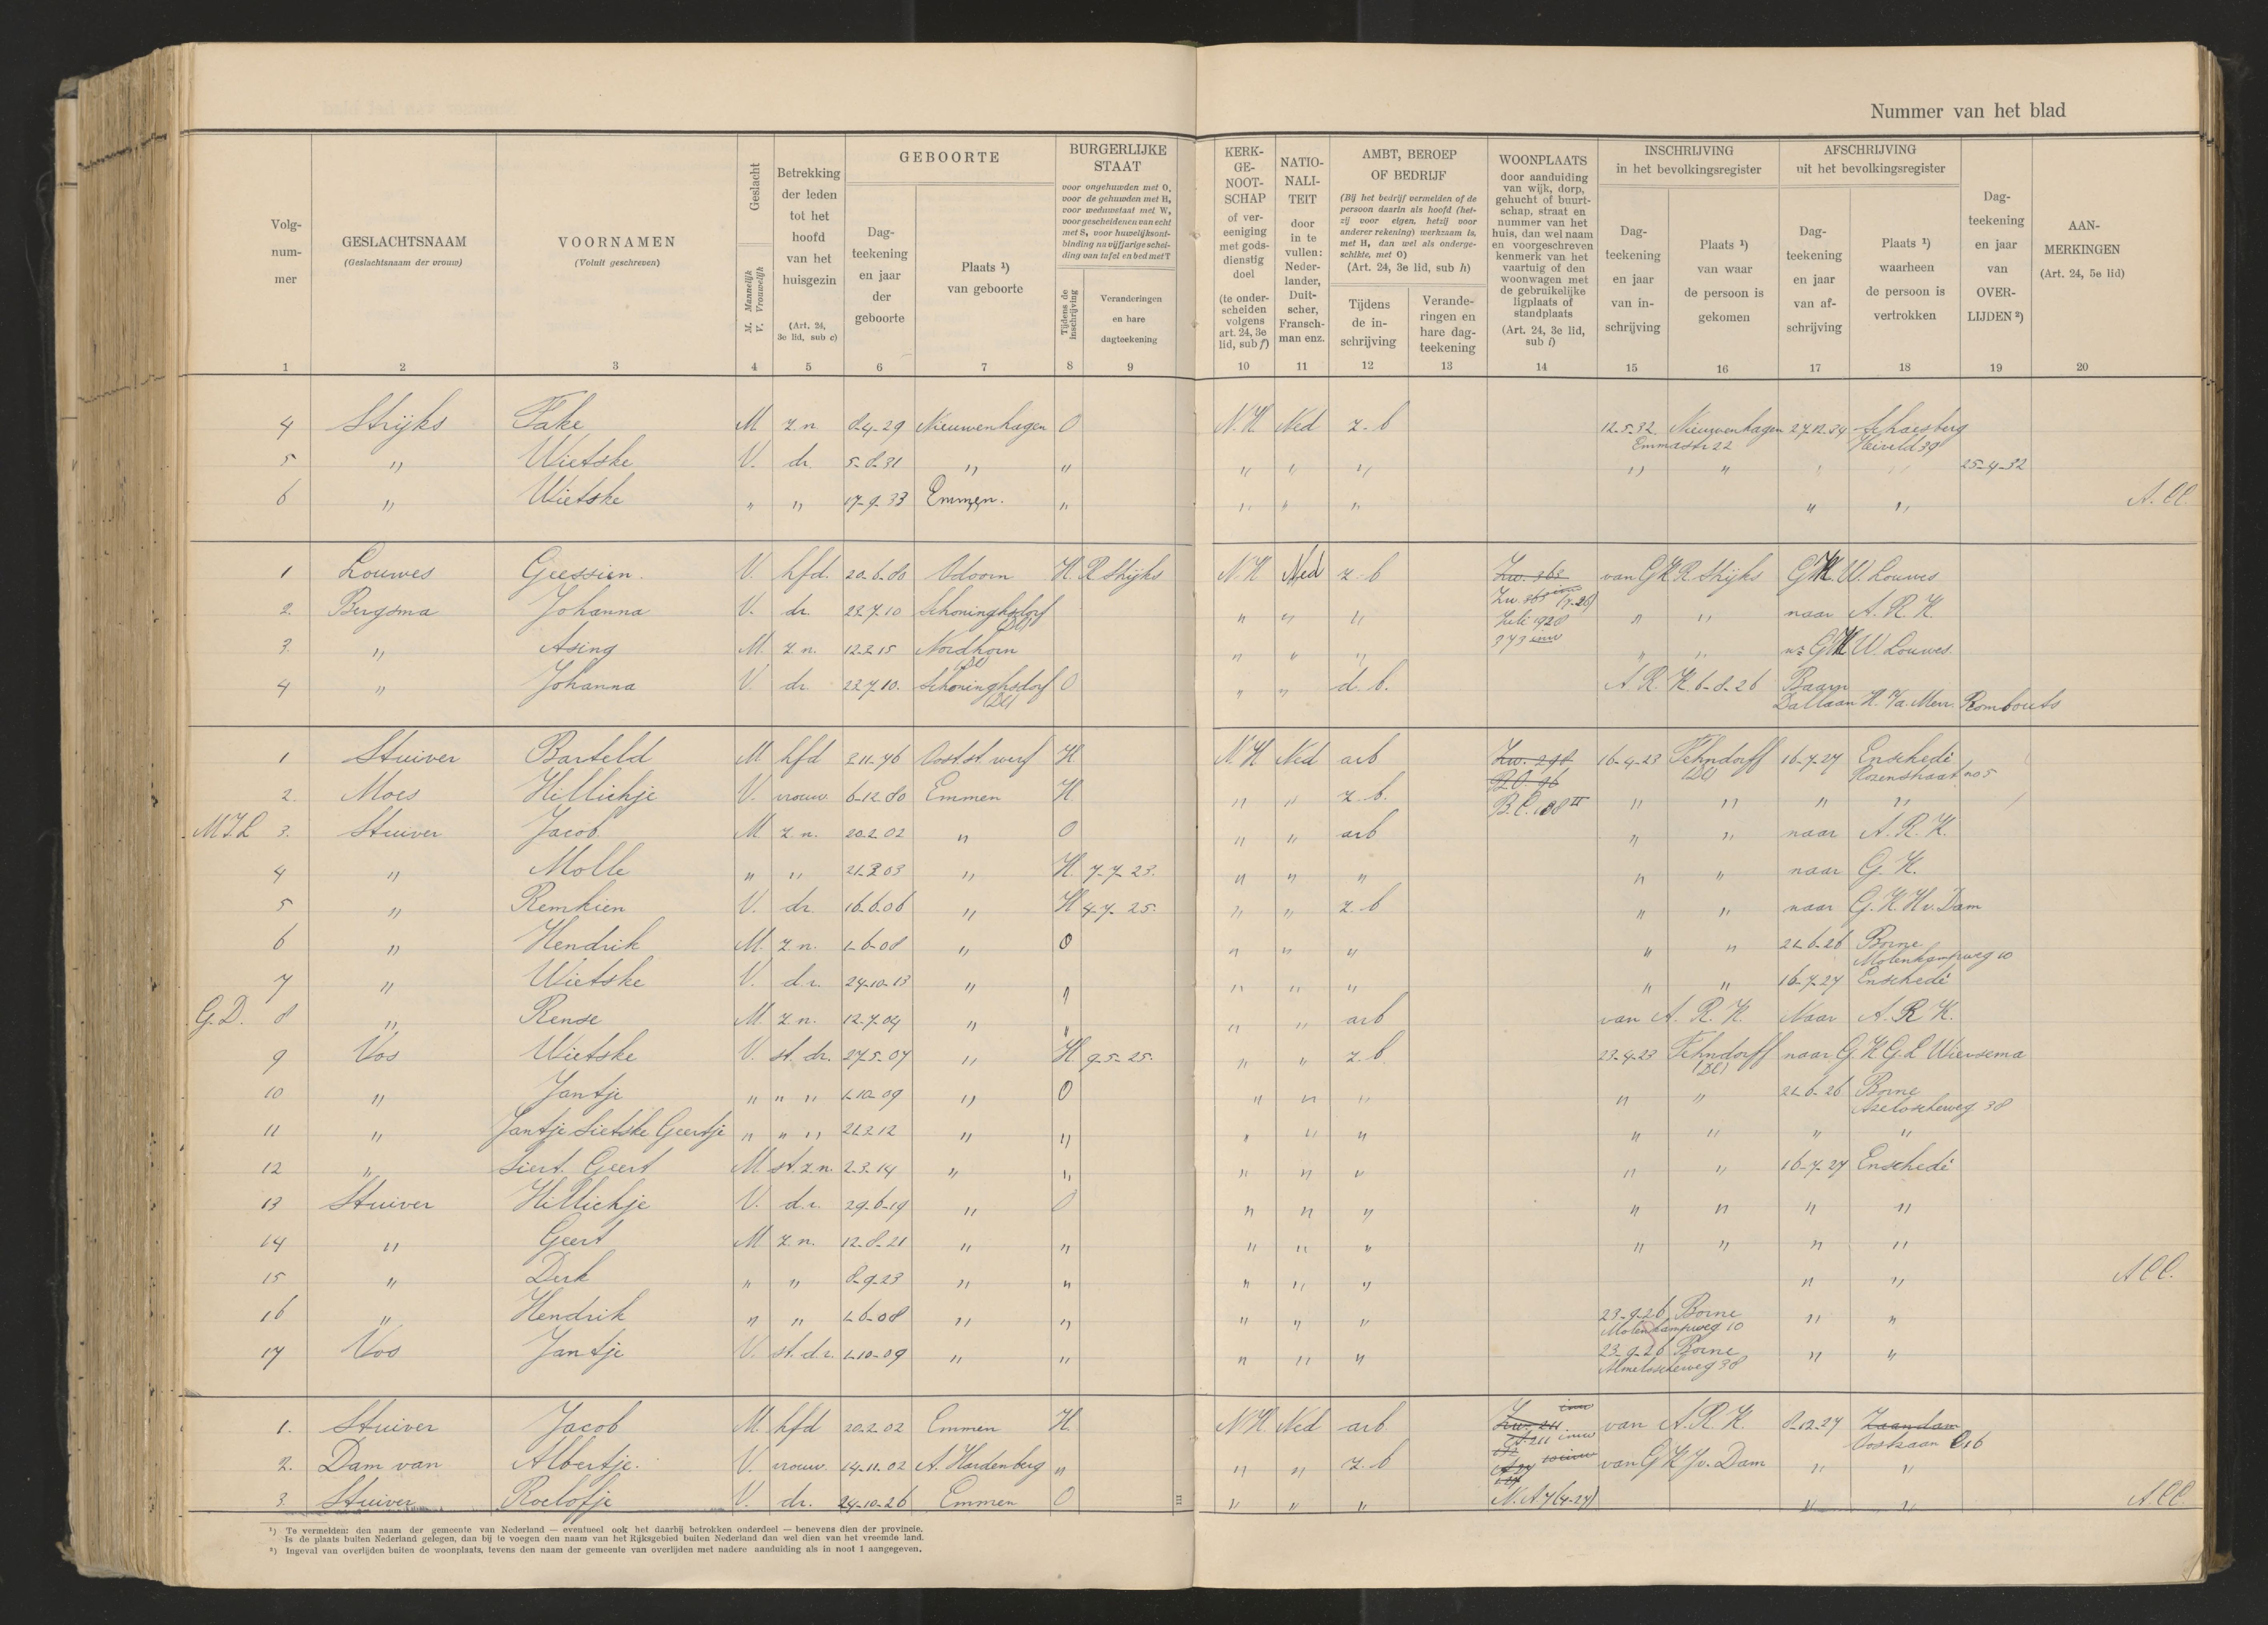 Nummer van het blad
Volg-
num-
mer
GESLACHTSNAAM
(Geslachtsnaam der vrouw)
VOORNAMEN
(Voluit geschreven)
Geslacht
M. Mannelijk
V. Vrouwelijk
Betrekking
der leden
tot het
hoofd
van het
huisgezin
(Art. 24,
3e lid, sub c)
GEBOORTE
Dag-
teekening
en jaar
der
geboorte
Plaats ¹)
van geboorte
BURGERLIJKE
STAAT
voor ongehuwden met O,
voor de gehuwden met H,
voor weduwstaat met W,
voor gescheidenen van echt
met S, voor huwelijksont-
binding na vijfjarige schei-
ding van tafel en bed met T
Tijdens de
inschrijving
Veranderingen
en hare
dagteekening
KERK-
GE-
NOOT-
SCHAP
of ver-
eeniging
met gods-
dienstig
doel
(te onder-
scheiden
volgens
art. 24, 3e
lid, sub f)
NATIO-
NALI-
TEIT
door
in te
vullen:
Neder-
lander,
Duit-
scher,
Fransch-
man enz.
AMBT, BEROEP
OF BEDRIJF
(Bij het bedrijf vermelden of de
persoon daarin als hoofd (het-
zij voor eigen, hetzij voor
anderer rekening) werkzaam is,
met H, dan wel als onderge-
schikte, met O)
(Art. 24, 3e lid, sub h)
Tijdens
de in-
schrijving
Verande-
ringen en
hare dag-
teekening
WOONPLAATS
door aanduiding
van wijk, dorp,
gehucht of buurt-
schap, straat en
nummer van het
huis, dan wel naam
en voorgeschreven
kenmerk van het
vaartuig of den
woonwagen met
de gebruikelijke
ligplaats of
standplaats
(Art. 24, 3e lid,
sub i)
INSCHRIJVING
in het bevolkingsregister
Dag-
teekening
en jaar
van in-
schrijving
Plaats ¹)
van waar
de persoon is
gekomen
AFSCHRIJVING
uit het bevolkingsregister
Dag-
teekening
en jaar
van af-
schrijving
Plaats ¹)
waarheen
de persoon is
vertrokken
Dag-
teekening
en jaar
van
OVER-
LIJDEN ²)
AAN-
MERKINGEN
(Art. 24, 5e lid)
1 2 3 4 5 6 7 8 9 10 11 12 13 14 15 16 17 18 19 20
4 Strijks Fake M z.n. 8-4-29 Nieuwenhagen O N.H Ned z.b 12-5-32 Nieuwenhagen 27.12.34 Schaesberg
Emmastr 22 Heiveld 39
5 " Wietske V. dr. 5-8-31 " " " " " " " 25-4-32
6 " Wietske " " 17-9-33 Emmen. " " " " " " A.C.C.
1 Louwes Geessien V. hfd. 20-6-80 Odoorn H. R Strijks N.H Ned z.b Zw. 363 van G K R Strijks GK W. Louwes
2. Bergsma Johanna V. dr. 23.7.10 Schoninghsdorf " " " " " naar A. R. K.
Juli 1928
3. " Asing M. z.n. 12.2.15 Nordhorn " " " 373 " " GK W. Louwes
4 " Johanna V. dr. 23.7.10. Schoninghsdorf O " " d.b. A R. K. 6-8-26 Baarn
Dallaan Rombouts
1 Stuiver Barteld M hfd 2.11.76 Oostst.werf H N.H Ned arb Zw. 16-4-23 Fehndorff 16-7-27 Enschedé
Rozenstraat no 5
2. Moes Hillichje V. vrouw 6-12-80 Emmen H " " z.b. B.C. 108 II " " " "
3. Stuiver Jacob M. z.n. 20.2.02 " O " " arb " " naar A. R. K.
4 " Molle " " 21.3.03 " H. 7-7-23. " " " " " naar G. K.
5 " Remkien V. dr. 16.6.06 " H 4-7-25. " " z.b " " naar G. K. H v. Dam
6 " Hendrik M. z.n. 1-6-08 " O " " " " " 21-6-26 Borne
Molenkampweg 10
7 " Wietske V. d.r. 24-10-13 " " " " " " " 16-7-27 Enschedé
G.D. 8 " Rense M. z.n. 12.7.04 " " " " arb van A. R. K. Naar A. R K.
9 Vos Wietske V. st. dr. 27.5-07 " H 9-5-25. " " z.b. 23-4-23 Fehndorff naar G K G.L Wiersema
10 " Jantje " " " 1-10-09 " O " " " " " 21-6-26 Borne
11 " Jantje Sietske Geertje " " " 21.2.12 " " " " " " " " "
12 " Siert Geert M. st. z.n. 2-3-14 " " " " " " " 16-7-27 Enschedé
13 Stuiver Hillichje V. d.r. 29-6-19 " O " " " " " " "
14 " Geert M z.n. 12-8-21 " " " " " " " " "
15 " Derk " " 8-9-23 " " " " " " " A C C.
16 " Hendrik " " 1-6-08 " " " " " 23-9-26 Borne " "
Molenkampweg 10
17 Vos Jantje V. st. d.r. 1-10-09 " " " " " 23-9-26 Borne " "
Almeloscheweg 38
1. Stuiver Jacob M. hfd 20.2.02 Emmen H. N.H. Ned arb. Zw. 211 van A.R.K. 8-12-27 Zaandam
Oostzaan C16
2. Dam van Albertje. V. vrouw 14-11-02 A. Hardenberg " " " z.b van G K J v. Dam " "
3. Stuiver Roelofje V. dr. 24-10-26 Emmen O " " " N. A 7 (4-27) " " A.C.C.
¹) Te vermelden: den naam der gemeente van Nederland — eventueel ook het daarbij betrokken onderdeel — benevens dien der provincie.
Is de plaats buiten Nederland gelegen, dan bij te voegen den naam van het Rijksgebied buiten Nederland dan wel dien van het vreemde land.
²) Ingeval van overlijden buiten de woonplaats, tevens den naam der gemeente van overlijden met nadere aanduiding als in noot 1 aangegeven.